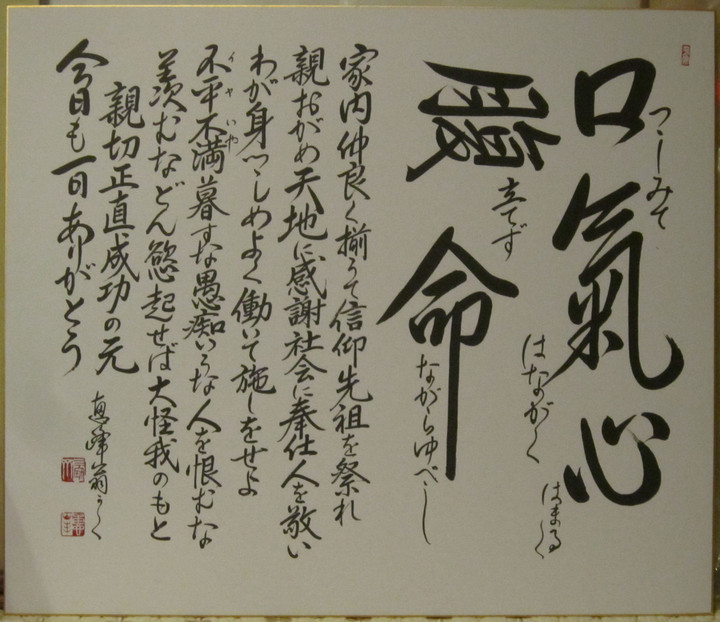 口つゝしみて氣はながく心はまるく
腹立てず命ながらゆべし
家内仲良く揃うて信仰先祖を祭れ
親おがめ天地に感謝社会に奉仕人を敬い
わが身つゝしめよく働いて施しをせよ
不平不満暮すな愚痴いうな人を恨むな
羨むなどん慾起せば大怪我のもと
親切正直成功の元
今日も一日ありがとう
恵峰翁かく